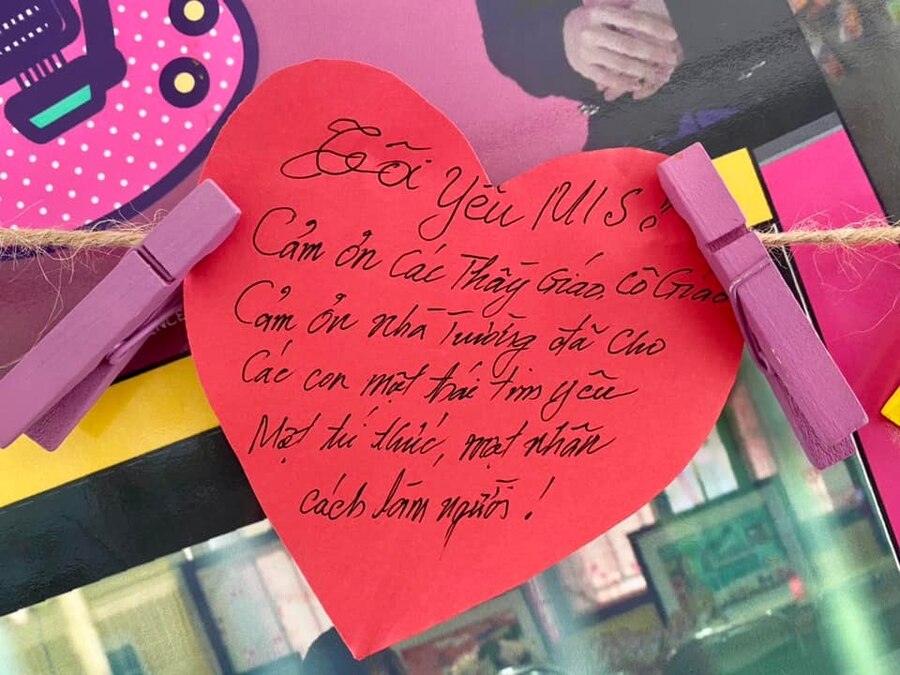 Tôi yêu MIS!
Cảm ơn các Thầy giáo, Cô Giáo
Cảm ơn nhà trường đã cho
Các con một trái tim yêu
Một tri thức, một nhân
cách làm người!